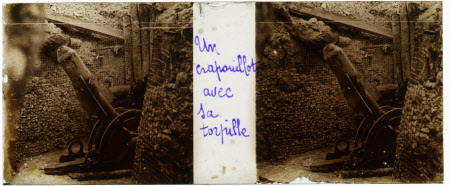 Un
crapouillot
avec
sa
torpille